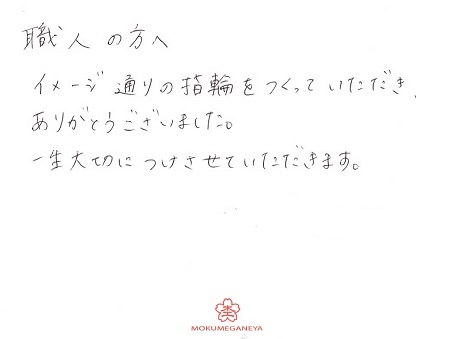 職人の方へ
イメージ通りの指輪をつくっていただき、
ありがとうございました。
一生大切につけさせていただきます。
MOKUMEGANEYA